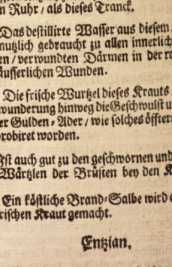 n Ruhr / als dieses Tranck.
Das destillirte Wasser aus diesem
nutzlich gebraucht zu allen innerlich
en / verwundten Därmen in der ro
äusserlichen Wunden.
Die frische Wurtzel dieses Krauts
wunderung hinweg die Geschwulst u
er Gulden-Ader / wie solches öffter
robiret worden.
Ist auch gut zu den geschwornen und
Wärtzlen der Brüsten bey den K
Ein köstliche Brand-Salbe wird
rischen Kraut gemacht.
Entzian.